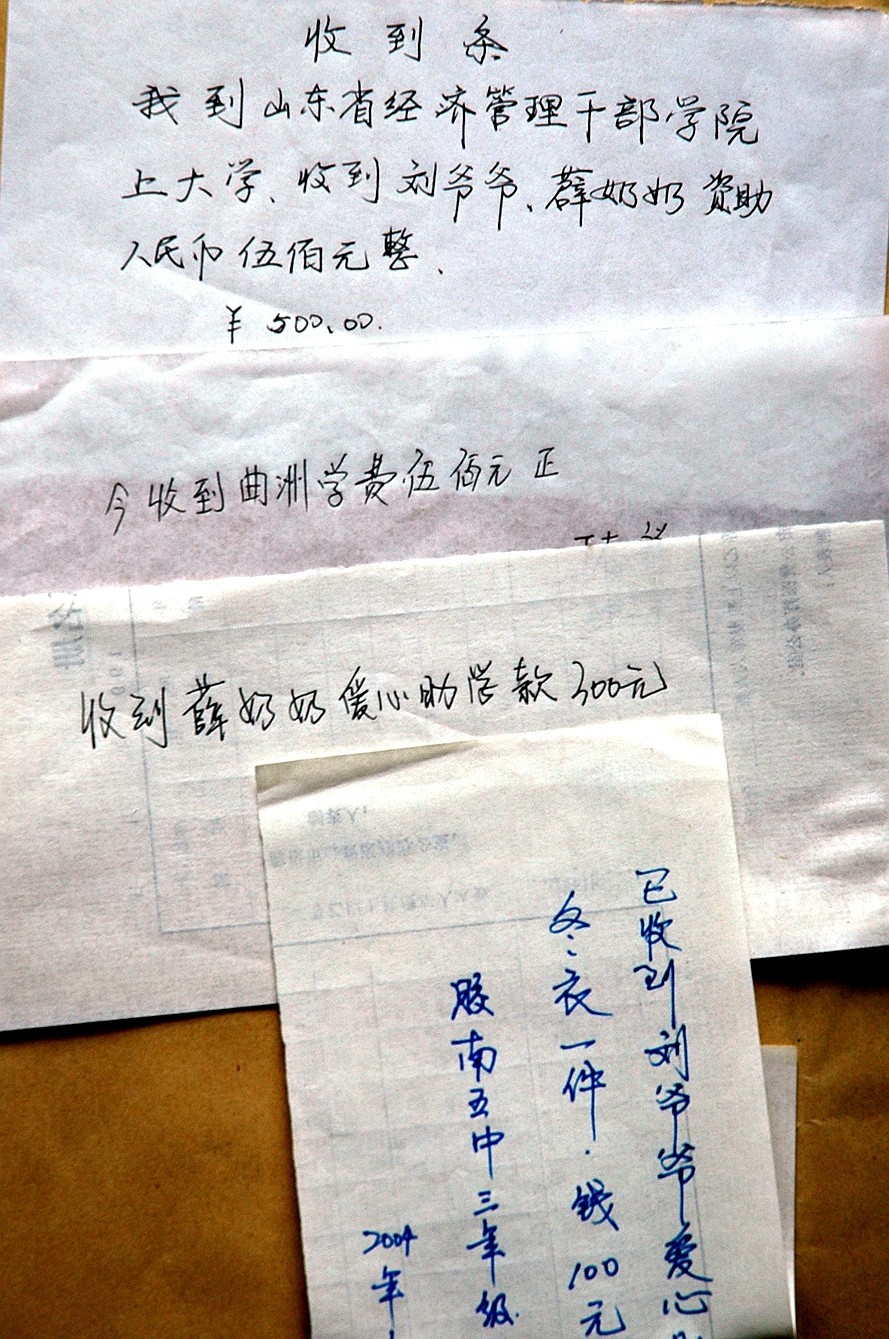 收到条
我到山东省经济管理干部学院
上大学、收到刘爷爷、薛奶奶资助
人民币伍佰元整、
¥ 500.00.
今收到曲洲学费伍佰元正
收到薛奶奶爱心助学款300元
已收到刘爷爷爱心
冬衣一件·钱100元
胶南五中三年级
2004年